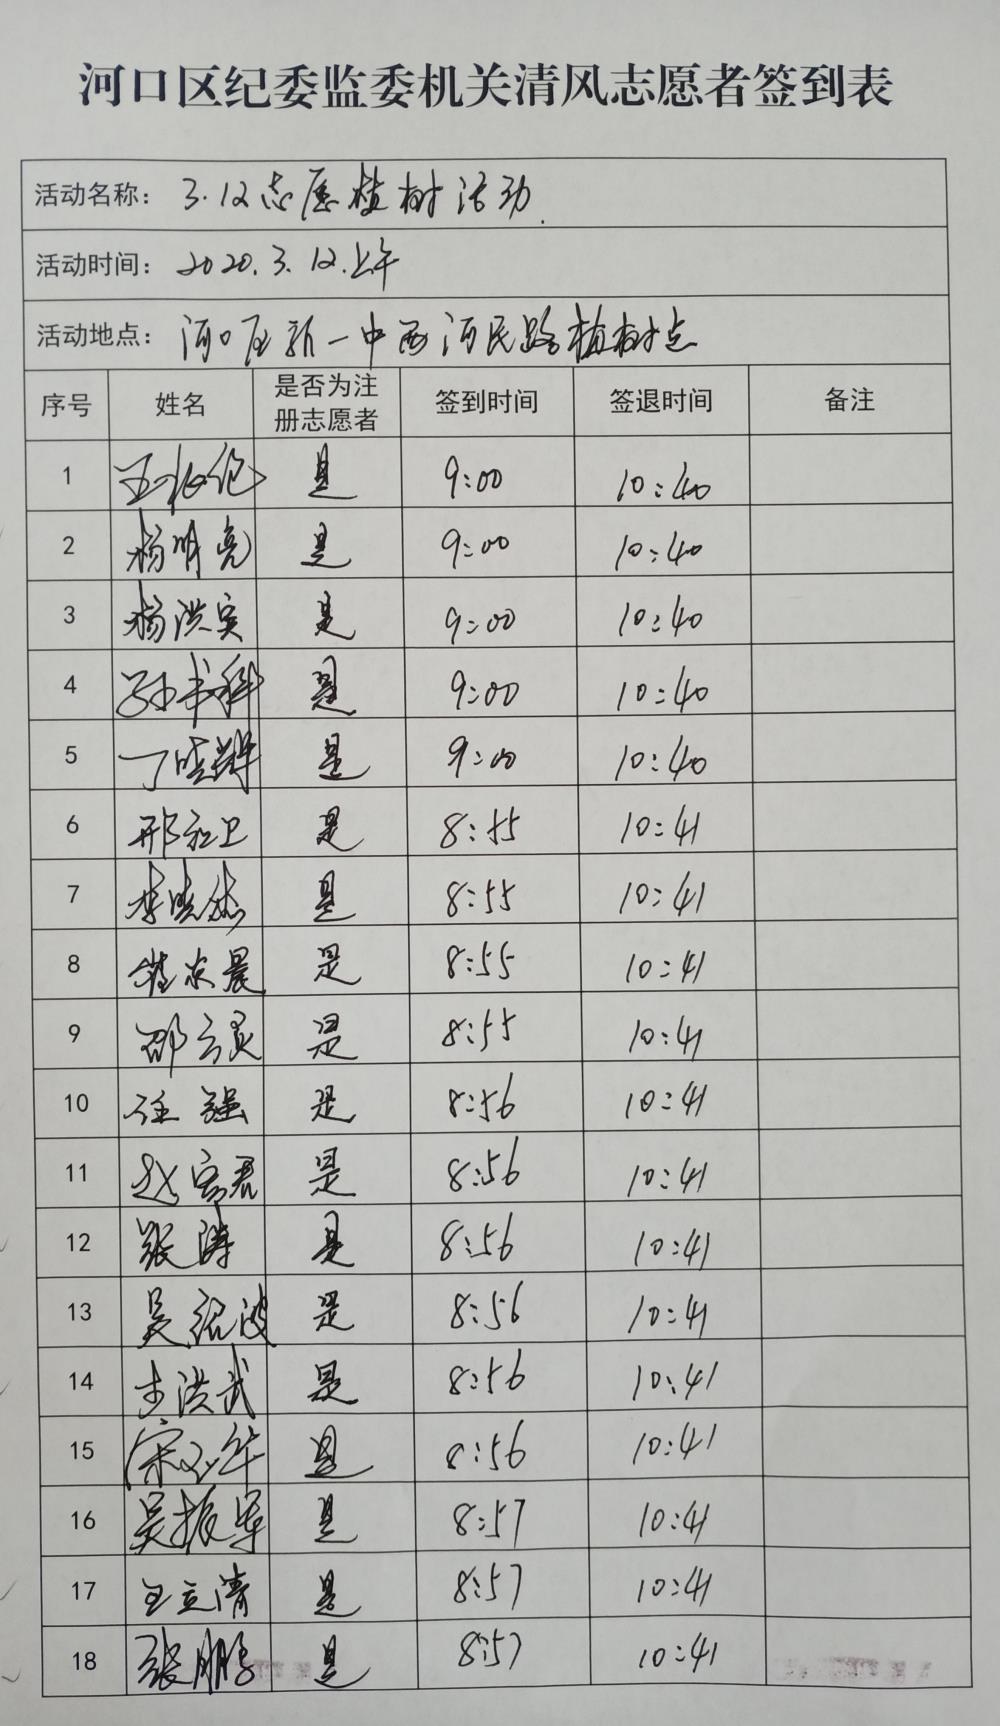 河口区纪委监委机关清风志愿者签到表
活动名称： 3.12志愿植树活动
活动时间： 2020.3.12.上午
活动地点： 河口区新一中西河民路植树点
序号 姓名 是否为注册志愿者 签到时间 签退时间 备注
1 是 9:00 10:40
2 杨明亮 是 9:00 10:40
3 杨洪宾 是 9:00 10:40
4 孙书科 是 9:00 10:40
5 丁晓辉 是 9:00 10:40
6 邢红卫 是 8:55 10:41
7 李晓杰 是 8:55 10:41
8 是 8:55 10:41
9 邵云灵 是 8:55 10:41
10 汪强 是 8:56 10:41
11 赵宫君 是 8:56 10:41
12 张涛 是 8:56 10:41
13 吴绍波 是 8:56 10:41
14 李洪武 是 8:56 10:41
15 是 8:56 10:41
16 吴振军 是 8:57 10:41
17 王立清 是 8:57 10:41
18 张鹏 是 8:57 10:41